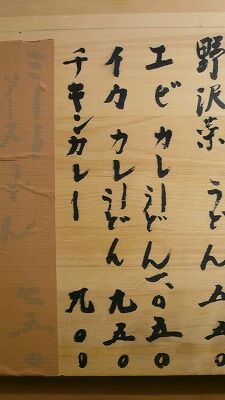 野沢菜うどん 五五〇
エビカレーうどん 一、〇五〇
イカカレーうどん 九五〇
チキンカレー 九〇〇